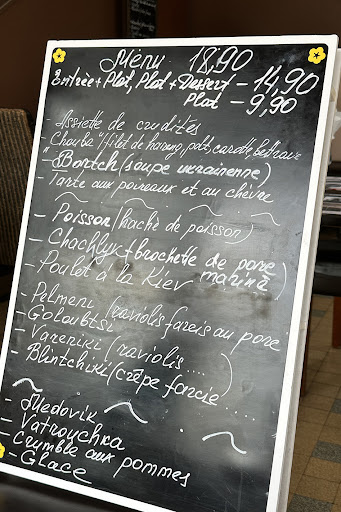 Menu 18,90
Entrée + Plat, Plat + Dessert - 14,90
Plat - 9,90
- Assiette de crudités
- Chouba "(filet de hareng, pdt, carotte, betterave
- Bortch (soupe ukrainienne)
- Tarte aux poireaux et au chèvre
- Poisson (haché de poisson)
- Chachlyk + brochette de porc mariné)
- Poulet à la Kiev
- Pelmeni (raviolis farcis au porc
- Goloubtsi
- Vareniki (raviolis ....)
- Blintchiki (crêpe farcie .....
- Medovik
- Vatrouchka
- Crumble aux pommes
- Glace